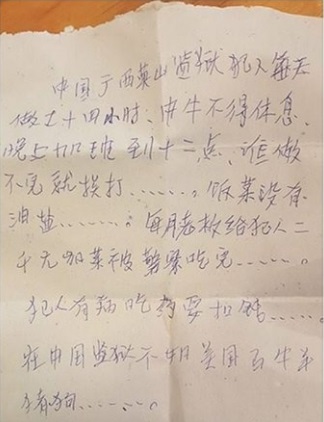 中国广西英山监狱犯人每天
做工十四小时、中午不得休息、
晚上加班到十二点、谁做
不完就挨打……。饭菜没有
油盐……。每月老板给犯人二
千元加菜被警察吃完……。
犯人有病吃药要扣钱……。
在中国监狱不如美国马牛羊
猪狗……。